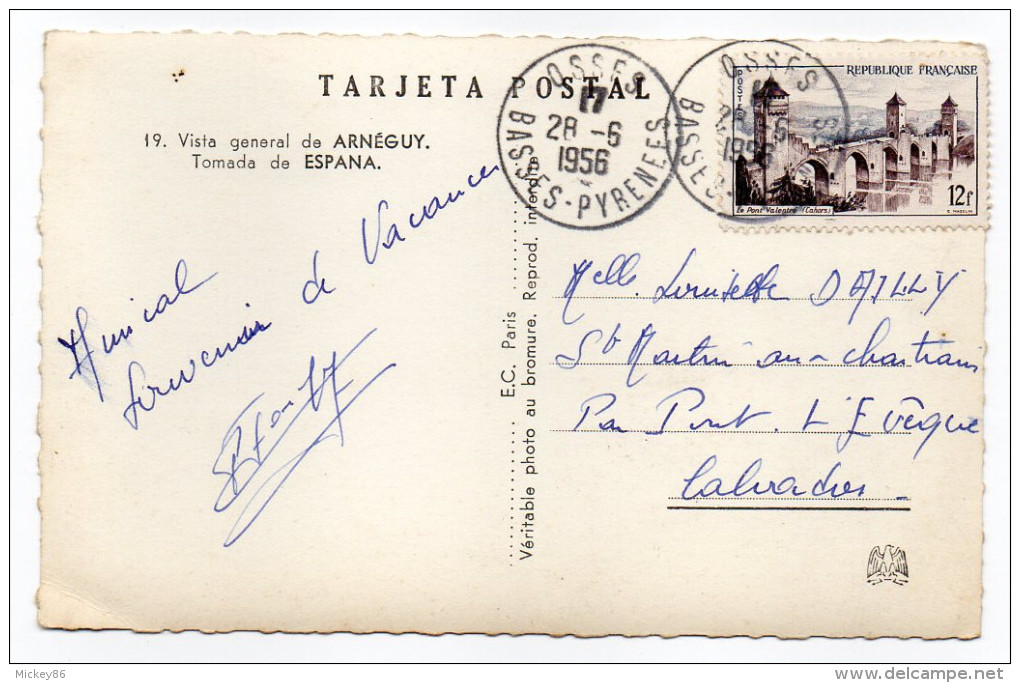 TARJETA POSTAL
19. Vista general de ARNÉGUY.
Tomada de ESPANA.
Amical
souvenir de Vacances
E.C. Paris
Véritable photo au bromure. Reprod. interdite
OSSES
17
28 -6
1956
BASSES-PYRENEES
OSSES
17
28 -6
1956
BASSES-PYRENEES
REPUBLIQUE FRANÇAISE
POSTES
12f
Le Pont Valentré (Cahors)
Melle Louisette DAILLY
St Martin aux chartrains
Par Pont. L'Evêque
Calvados
Mickey86
www.delcampe.net